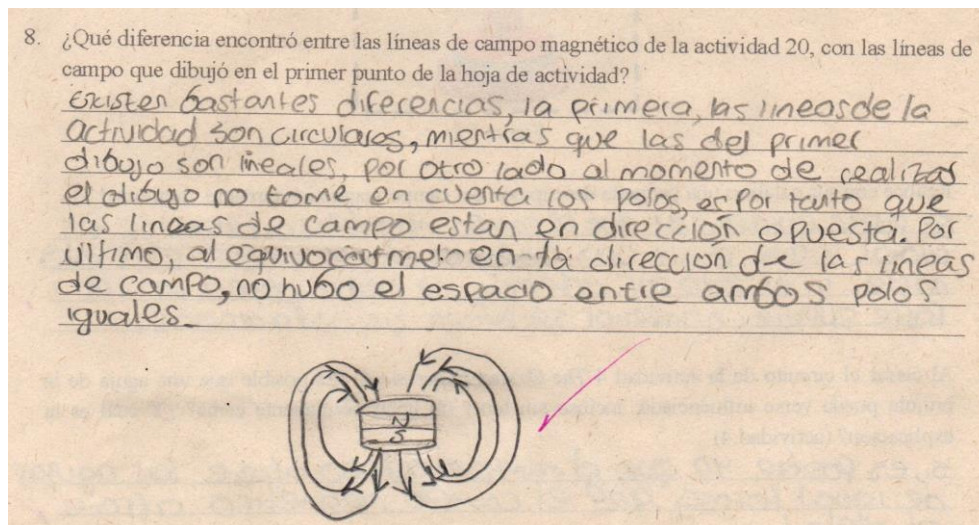 8. ¿Qué diferencia encontró entre las líneas de campo magnético de la actividad 20, con las líneas de
campo que dibujó en el primer punto de la hoja de actividad?
Existen bastantes diferencias, la primera, las lineas de la
actividad son circulares, mientras que las del primer
dibujo son lineales, por otro lado al momento de realizar
el dibujo no tome en cuenta los polos, es por tanto que
las lineas de campo estan en dirección opuesta. Por
último, al equivocarme en la dirección de las lineas
de campo, no hubo el espacio entre ambos polos
iguales.
N
S